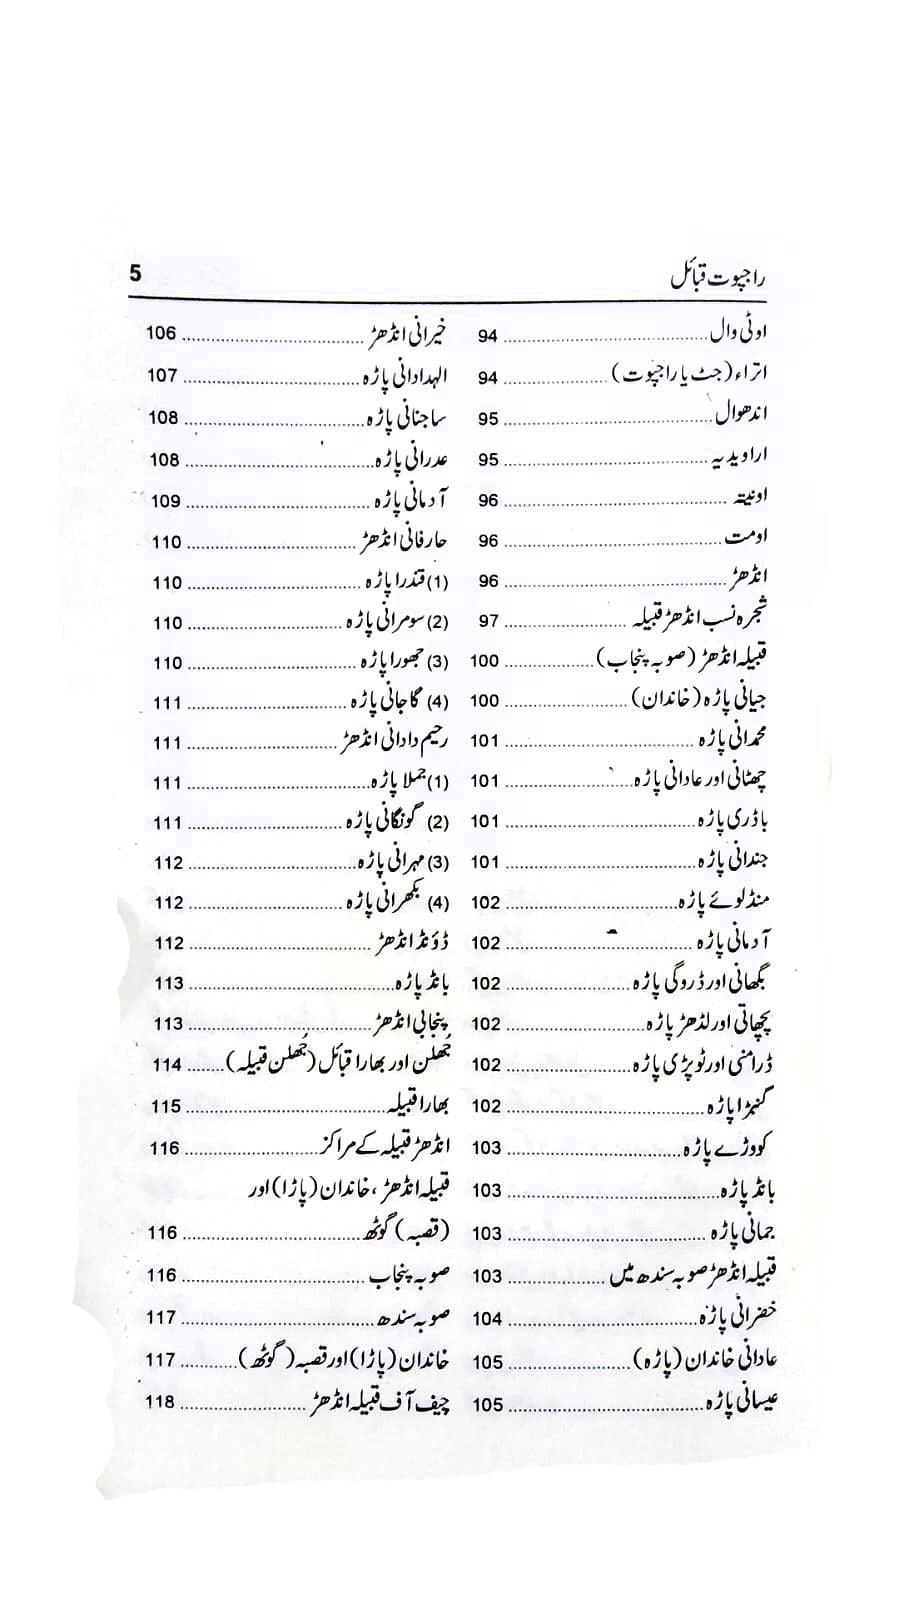 راجپوت قبائل 5
اوٹی وال 94
اتراء (جٹ یا راجپوت) 94
اندھوال 95
اراویدیہ 95
اونیتہ 96
اومت 96
انڈھڑ 96
شجرہ نسب انڈھڑ قبیلہ 97
قبیلہ انڈھڑ (صوبہ پنجاب) 100
جیانی پاڑہ (خاندان) 100
محمدانی پاڑہ 101
چھٹانی اور عادانی پاڑہ 101
باڈری پاڑہ 101
جندانی پاڑہ 101
منڈلوئے پاڑہ 102
آدمانی پاڑہ 102
بگھانی اور ڈروگی پاڑہ 102
پچھاتی اور لڈھڑ پاڑہ 102
ڈرامنی اور ٹوپڑی پاڑہ 102
گنبڑا پاڑہ 102
کووڑے پاڑہ 103
بانڈ پاڑہ 103
جمانی پاڑہ 103
قبیلہ انڈھڑ صوبہ سندھ میں 103
خضرانی پاڑہ 104
عادانی خاندان (پاڑہ) 105
عیسانی پاڑہ 105
خیرانی انڈھڑ 106
الہدادانی پاڑہ 107
ساجنانی پاڑہ 108
عدرانی پاڑہ 108
آدمانی پاڑہ 109
حارفانی انڈھڑ 110
(1) قندرا پاڑہ 110
(2) سومرانی پاڑہ 110
(3) جھورا پاڑہ 110
(4) گاجانی پاڑہ 111
رحیم دادانی انڈھڑ 111
(1) جملا پاڑہ 111
(2) گونگانی پاڑہ 111
(3) مہرانی پاڑہ 112
(4) بکھرانی پاڑہ 112
ڈؤنڈ انڈھڑ 112
بانڈ پاڑہ 113
پنجابی انڈھڑ 113
جُھلن اور بھارا قبائل (جُھلن قبیلہ) 114
بھارا قبیلہ 115
انڈھڑ قبیلہ کے مراکز 116
قبیلہ انڈھڑ، خاندان (پاڑا) اور
(قصبہ) گوٹھ 116
صوبہ پنجاب 116
صوبہ سندھ 117
خاندان (پاڑا) اور قصبہ (گوٹھ) 117
چیف آف قبیلہ انڈھڑ 118